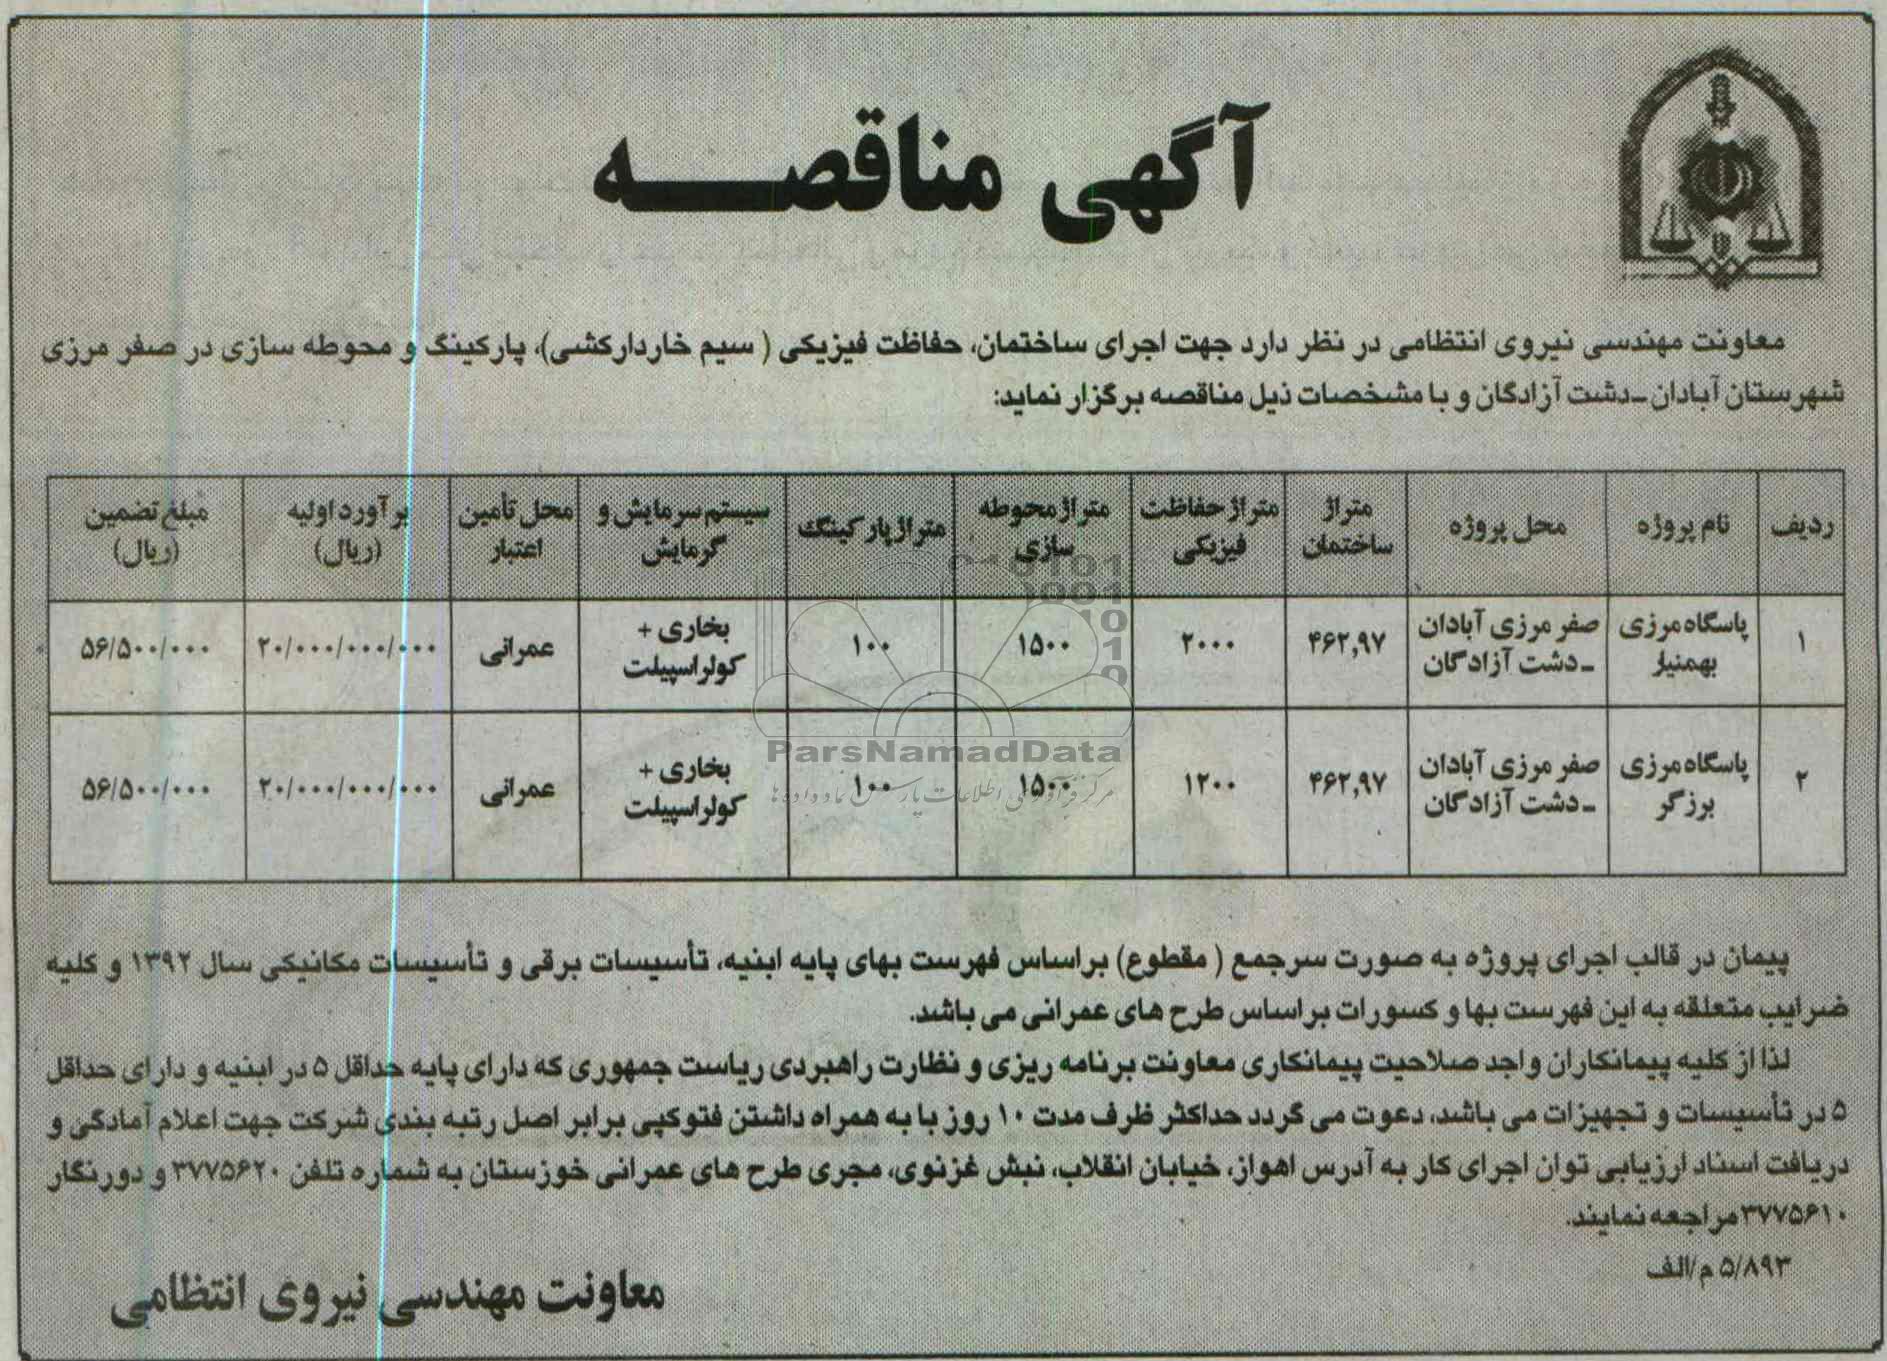 آگهی مناقصه
معاونت مهندسی نیروی انتظامی در نظر دارد جهت اجرای ساختمان، حفاظت فیزیکی ( سیم خاردارکشی)، پارکینگ و محوطه سازی در صفر مرزی
شهرستان آبادان -دشت آزادگان و با مشخصات ذیل مناقصه برگزار نماید:
ردیف | نام پروژه | محل پروژه | متراژ ساختمان | متراژ حفاظت فیزیکی | متراژ محوطه سازی | متراژ پارکینگ | سیستم سرمایش و گرمایش | محل تأمین اعتبار | برآورد اولیه (ریال) | مبلغ تضمین (ریال)
۱ | پاسگاه مرزی بهمنیار | صفر مرزی آبادان -دشت آزادگان | ۴۶۲,۹۷ | ۲۰۰۰ | ۱۵۰۰ | ۱۰۰ | بخاری + کولر اسپیلت | عمرانی | ۲۰/۰۰۰/۰۰۰/۰۰۰ | ۵۶/۵۰۰/۰۰۰
۲ | پاسگاه مرزی برزگر | صفر مرزی آبادان -دشت آزادگان | ۴۶۲,۹۷ | ۱۲۰۰ | ۱۵۰۰ | ۱۰۰ | بخاری + کولر اسپیلت | عمرانی | ۲۰/۰۰۰/۰۰۰/۰۰۰ | ۵۶/۵۰۰/۰۰۰
ParsNamadData
مرکز فرآوری اطلاعات پارس نماد داده ها
پیمان در قالب اجرای پروژه به صورت سرجمع ( مقطوع) براساس فهرست بهای پایه ابنیه، تأسیسات برقی و تأسیسات مکانیکی سال ۱۳۹۲ و کلیه
ضرایب متعلقه به این فهرست بها و کسورات براساس طرح های عمرانی می باشد.
لذا از کلیه پیمانکاران واجد صلاحیت پیمانکاری معاونت برنامه ریزی و نظارت راهبردی ریاست جمهوری که دارای پایه حداقل ۵ در ابنیه و دارای حداقل
۵ در تأسیسات و تجهیزات می باشد، دعوت می گردد حداکثر ظرف مدت ۱۰ روز با به همراه داشتن فتوکپی برابر اصل رتبه بندی شرکت جهت اعلام آمادگی و
دریافت اسناد ارزیابی توان اجرای کار به آدرس اهواز، خیابان انقلاب، نبش غزنوی، مجری طرح های عمرانی خوزستان به شماره تلفن ۳۷۷۵۶۲۰ و دورنگار
۳۷۷۵۶۱۰مراجعه نمایند.
۵/۸۹۳ م/الف
معاونت مهندسی نیروی انتظامی